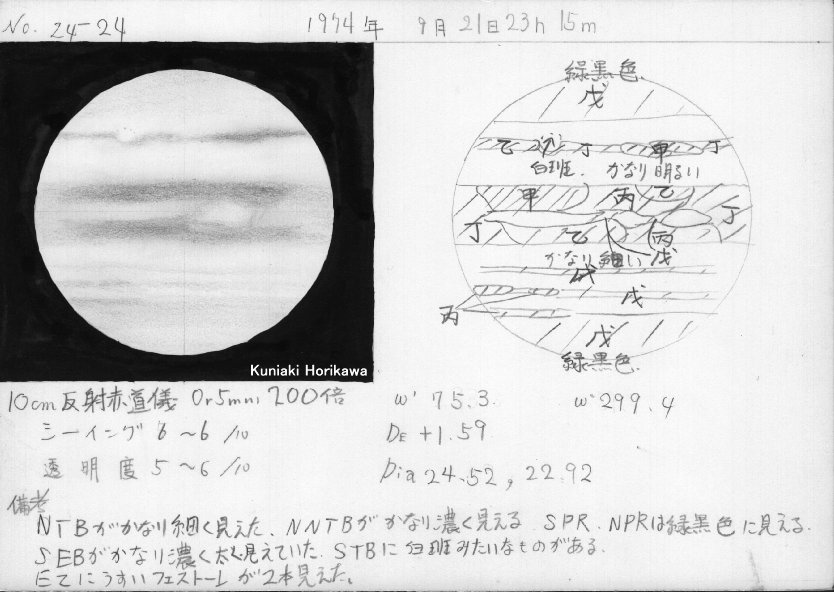 No. 24-24 1974年 9月21日23h 15m
緑黒色
戊
乙 丁 甲 丁
白班. かなり明るい
甲 丙 乙 丁
丁 乙 丙
かなり細い 戊
戊
戊
丙
戊
緑黒色
Kuniaki Horikawa
10cm反射赤道儀 Or5mm, 200倍 ω' 75.3 ω" 299.4
シーイング 6〜6/10 DE +1.59
透明度 5〜6/10 Dia 24.52, 22.92
備考
NTBがかなり細く見えた. NNTBがかなり濃く見える. SPR. NPRは緑黒色に見える.
SEBがかなり濃く太く見えていた. STBに白班みたいなものがある.
EZにうすいフェストーンが2本見えた。